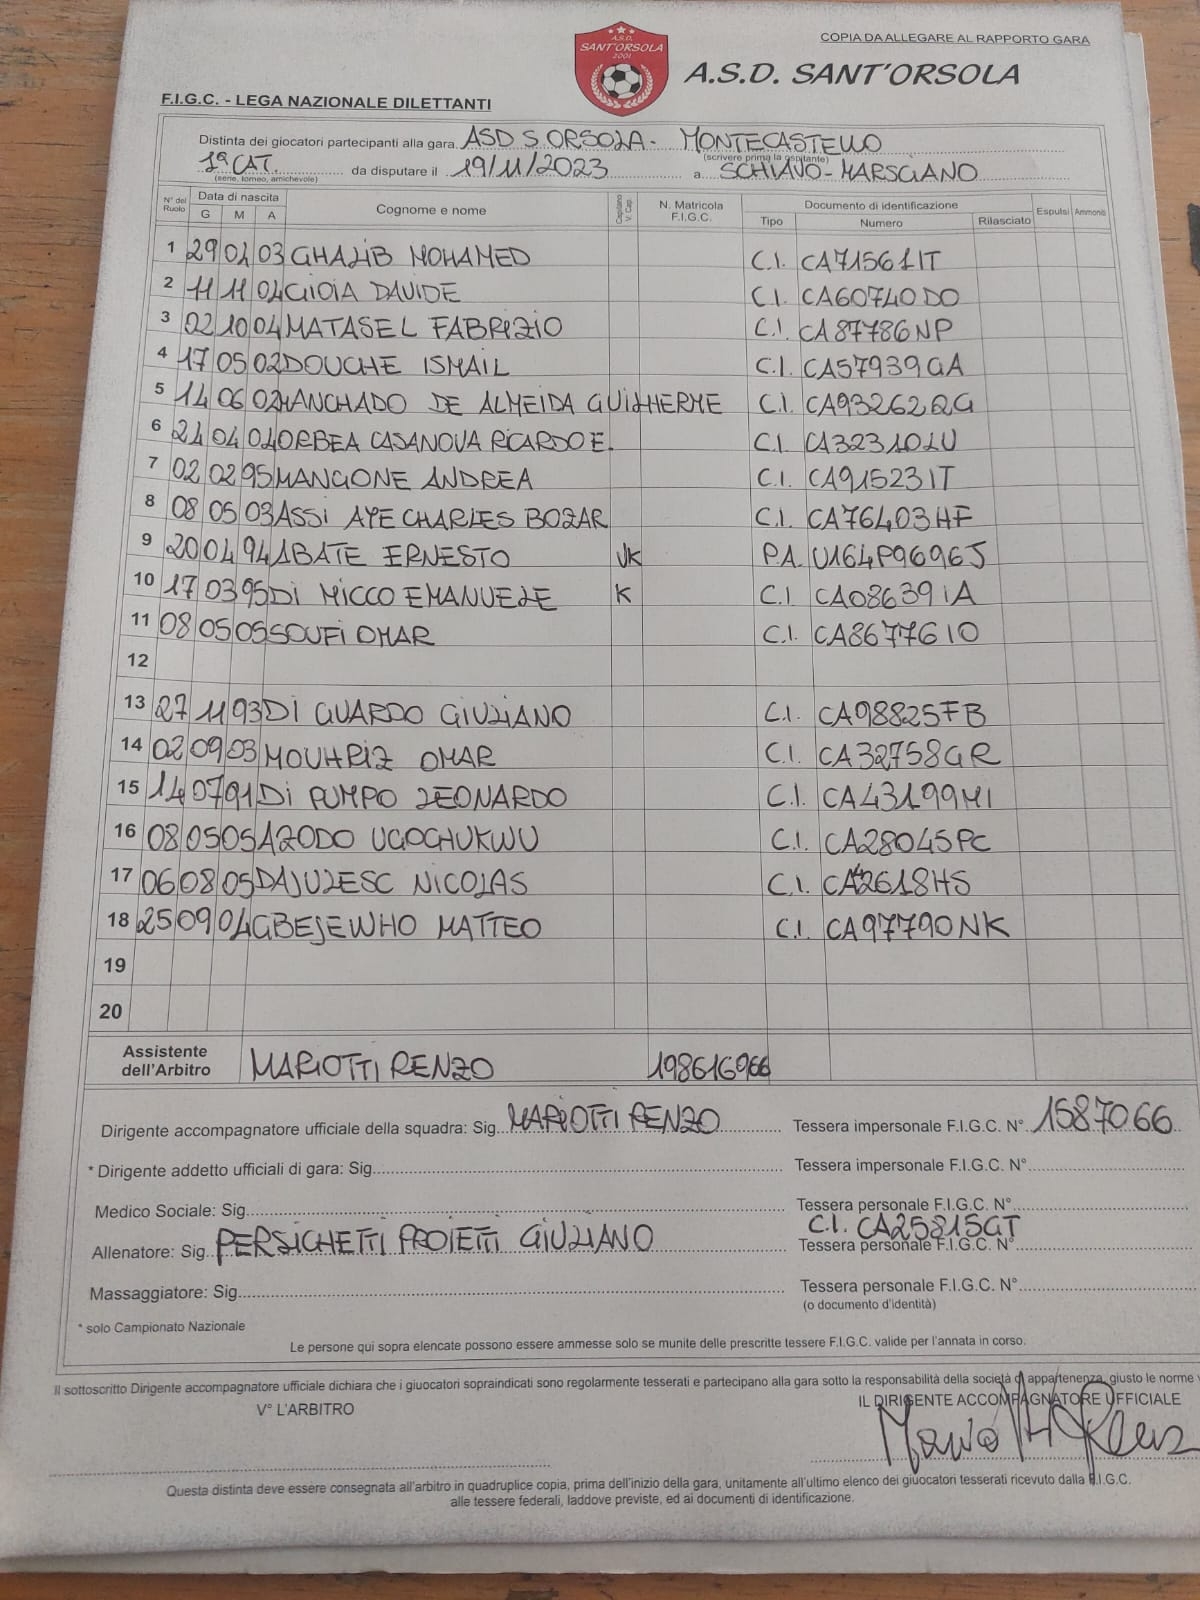 COPIA DA ALLEGARE AL RAPPORTO GARA
A.S.D.
SANT'ORSOLA
2001
A.S.D. SANT'ORSOLA
F.I.G.C. - LEGA NAZIONALE DILETTANTI
Distinta dei giocatori partecipanti alla gara ASD S. ORSOLA - MONTECASTELLO
(scrivere prima la ospitante)
1ª CAT. da disputare il 19/11/2023 a SCHIAVO - MARSCIANO
(serie, torneo, amichevole)
N° del Ruolo Data di nascita Cognome e nome Capitano V. Cap. N. Matricola F.I.G.C. Documento di identificazione Espulsi Ammoniti
G M A Tipo Numero Rilasciato
1 29 04 03 GHALIB MOHAMED C.I. CA71561IT
2 11 11 04 GIOIA DAVIDE C.I. CA60740DO
3 02 10 04 MATASEL FABRIZIO C.I. CA87786NP
4 17 05 02 DOUCHE ISMAIL C.I. CA57939GA
5 14 06 02 MANCHADO DE ALMEIDA GUILHERME C.I. CA93262QG
6 24 04 04 ORBEA CASANOVA RICARDO E. C.I. CA32310LU
7 02 02 95 MANGONE ANDREA C.I. CA91523IT
8 08 05 03 ASSI AYE CHARLES BOZAR C.I. CA76403HF
9 20 04 94 ABATE ERNESTO VK P.A. U164P9696J
10 17 03 95 DI MICCO EMANUELE K C.I. CA08639IA
11 08 05 05 SOUFI OMAR C.I. CA86776IO
12
13 27 11 93 DI GUARDO GIULIANO C.I. CA98825FB
14 02 09 03 MOUHRIZ OMAR C.I. CA32758GR
15 14 07 91 DI PUMPO LEONARDO C.I. CA43199MI
16 08 05 05 AZODO UGOCHUKWU C.I. CA28045PC
17 06 08 05 DAJULESC NICOLAS C.I.
18 25 09 04 GBESEWHO MATTEO C.I. CA97790NK
19
20
Assistente dell'Arbitro MARIOTTI RENZO 198616966
Dirigente accompagnatore ufficiale della squadra: Sig. MARIOTTI RENZO Tessera impersonale F.I.G.C. N° 1587066
* Dirigente addetto ufficiali di gara: Sig. Tessera impersonale F.I.G.C. N°
Medico Sociale: Sig. Tessera personale F.I.G.C. N°
C.I. CA25815GT
Allenatore: Sig. PERSICHETTI PROIETTI GIULIANO Tessera personale F.I.G.C. N°
Massaggiatore: Sig. Tessera personale F.I.G.C. N°
(o documento d'identità)
* solo Campionato Nazionale
Le persone qui sopra elencate possono essere ammesse solo se munite delle prescritte tessere F.I.G.C. valide per l'annata in corso.
Il sottoscritto Dirigente accompagnatore ufficiale dichiara che i giuocatori sopraindicati sono regolarmente tesserati e partecipano alla gara sotto la responsabilità della società di appartenenza, giusto le norme
V° L'ARBITRO IL DIRIGENTE ACCOMPAGNATORE UFFICIALE
Questa distinta deve essere consegnata all'arbitro in quadruplice copia, prima dell'inizio della gara, unitamente all'ultimo elenco dei giuocatori tesserati ricevuto dalla F.I.G.C.
alle tessere federali, laddove previste, ed ai documenti di identificazione.